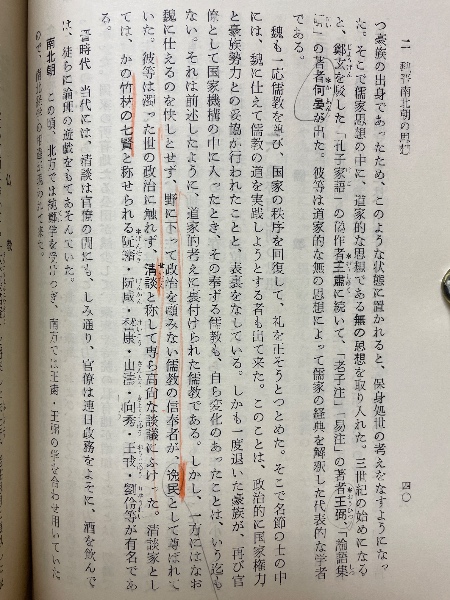 二　魏晋南北朝の思想
四〇
つ豪族の出身であったため、このような状態に置かれると、保身処世の考えをなすようになっ
た。そこで儒家思想の中に、道家的な思想である無の思想を取り入れた。三世紀の始めになる
と、鄭玄を駁した「孔子家語」の偽作者王粛に続いて、「老子注」「易注」の著者王弼、「論語集
解」の著者何晏が出た。彼等は道家的な無の思想によって儒家の経典を解釈した代表的な学者
である。
魏も一応儒教を尊び、国家の秩序を回復して、礼を正そうとつとめた。そこで名節の士の中
には、魏に仕えて儒教の道を実践しようとする者も出て来た。このことは、政治的に国家権力
と豪族勢力との妥協が行われたことと、表裏をなしている。しかも一度退いた豪族が、再び官
僚として国家機構の中に入ったとき、その奉ずる儒教も、自ら変化のあったことは、いう迄も
ない。それは前述したように、道家的考えに裏付けられた儒教である。しかし、一方にはなお
魏に仕えるのを快しとせず、野に下って政治を顧みない儒教の信奉者が、逸民として尊ばれて
いた。彼等は濁った世の政治に触れず、清談と称して専ら高尚な談議にふけった。清談家とし
ては、かの竹林の七賢と称せられる阮籍・阮咸・嵆康・山濤・向秀・王戎・劉伶等が有名であ
る。
晋時代　当代には、清談は官僚の間にも、しみ通り、官僚は連日政務をよそに、酒を飲んで
は、徒らに論理の遊戯をもてあそんでいた。
南北朝　この頃、北方では鄭玄学を受けつぎ、南方では王粛・王弼の学を合わせ用いていた
ので、南北